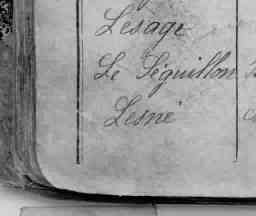 Lesage
Le Séguillon
Lesné